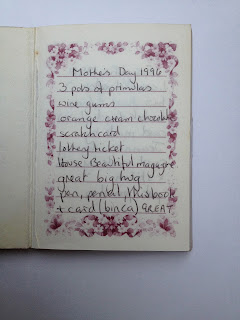 Mother's Day 1996
3 pots of primulas
wine gums
orange cream chocolate
scratchcard
lottery ticket
House Beautiful magazine
great big hug
pen, pencil, this book
+ card (binca) GREAT